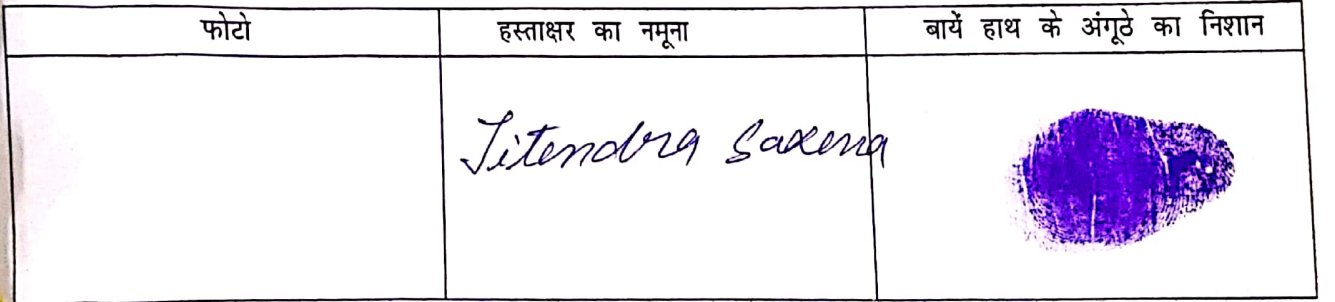 फोटो
हस्ताक्षर का नमूना
बायें हाथ के अंगूठे का निशान
Jitendra Saxena